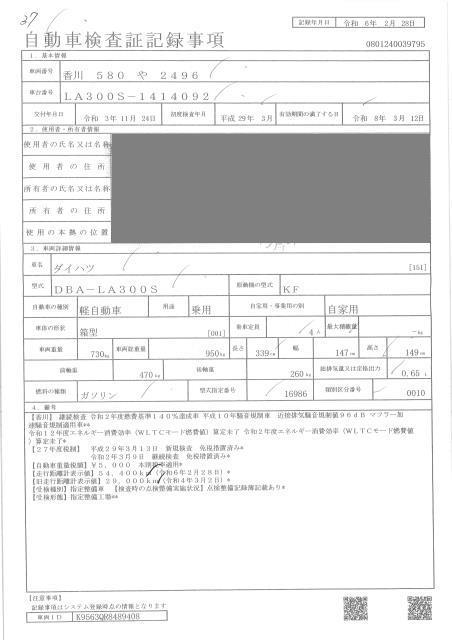 27
記録年月日 令和 6年 2月 28日
自動車検査証記録事項
0801240039795
1. 基本情報
車両番号 香川 580 や 2496
車台番号 LA300S-1414092
交付年月日 令和 3年 11月 24日 初度検査年月 平成 29年 3月 有効期間の満了する日 令和 8年 3月 12日
2. 使用者・所有者情報
使用者の氏名又は名称
使用者の住所
所有者の氏名又は名称
所有者の住所
使用の本拠の位置
3. 車両詳細情報
車名 ダイハツ [151]
型式 DBA-LA300S 原動機の型式 KF
自動車の種別 軽自動車 用途 乗用 自家用・事業用の別 自家用
車体の形状 箱型 [001] 乗車定員 4人 最大積載量 -kg
車両重量 730kg 車両総重量 950kg 長さ 339cm 幅 147cm 高さ 149cm
前軸重 470kg 後軸重 260kg 総排気量又は定格出力 0.65 L
燃料の種類 ガソリン 型式指定番号 16986 類別区分番号 0010
4. 備考
【香川】 継続検査 令和2年度燃費基準140%達成車 平成10年騒音規制車 近接排気騒音規制値96dB マフラー加
速騒音規制適用車**
令和12年度エネルギー消費効率(WLTCモード燃費値)算定未了 令和2年度エネルギー消費効率(WLTCモード燃費値
)算定未了*
【27年度税制】 平成29年3月13日 新規検査 免税措置済み*
令和2年3月9日 継続検査 免税措置済み*
【自動車重量税額】¥5,000 本則税率適用*
【走行距離計表示値】54,400km(令和6年2月28日)*
【旧走行距離計表示値】29,000km(令和4年3月2日)*
【受検種別】指定整備車 【検査時の点検整備実施状況】点検整備記録簿記載あり*
【受検形態】指定整備工場**
【注意事項】
記録事項はシステム登録時点の情報となります
車両ID K9563QR8489408